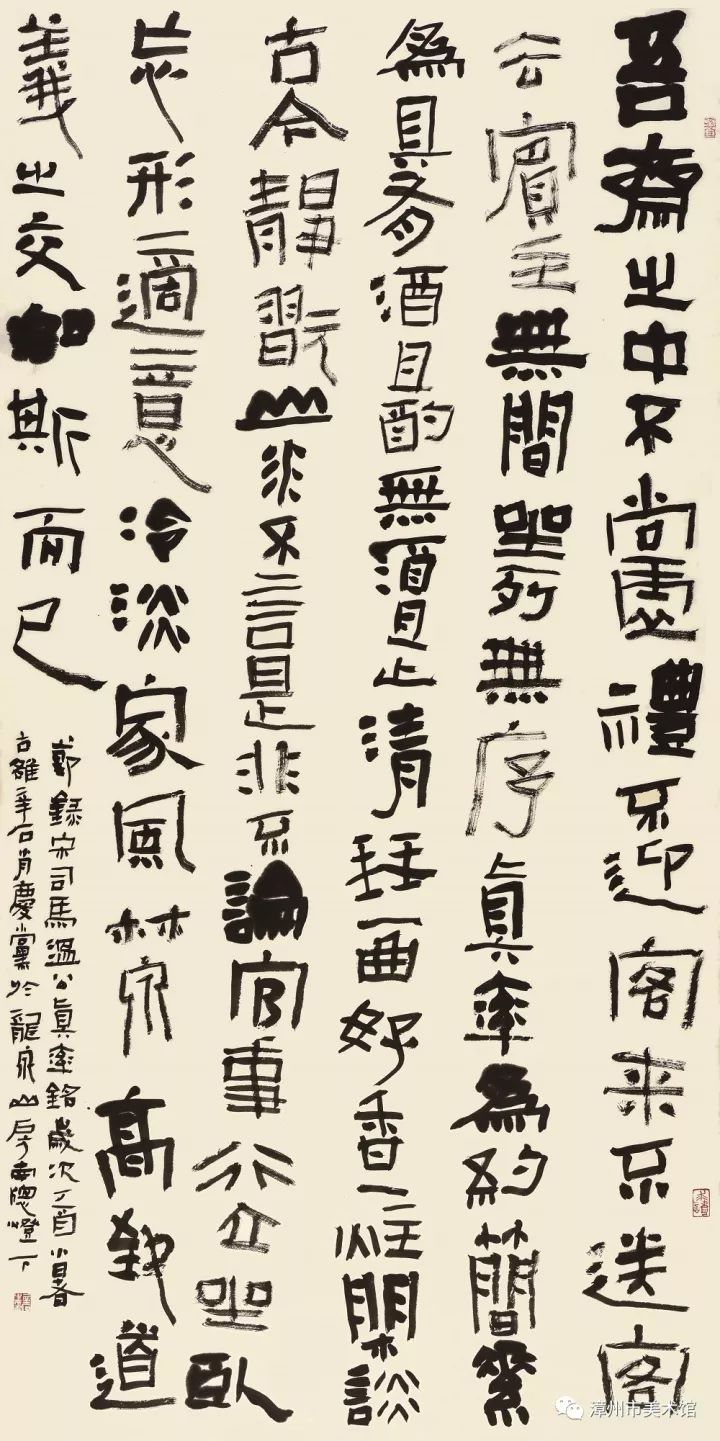 吾齋之中不尚虛禮不迎客来不送客
去賓主無間坐列無序真率為約簡素
為具有酒且酌無酒且止清琴一曲好香一炷閑談
古今靜翫山水不言是非不論官事行立坐臥
忘形適意冷淡家風林泉高致道
義之交如斯而已
錄宋司馬溫公真率銘歲次丁酉小暑
古雒辛石肖慶黨於龍泉山房南窗燈下
漳州市美术馆